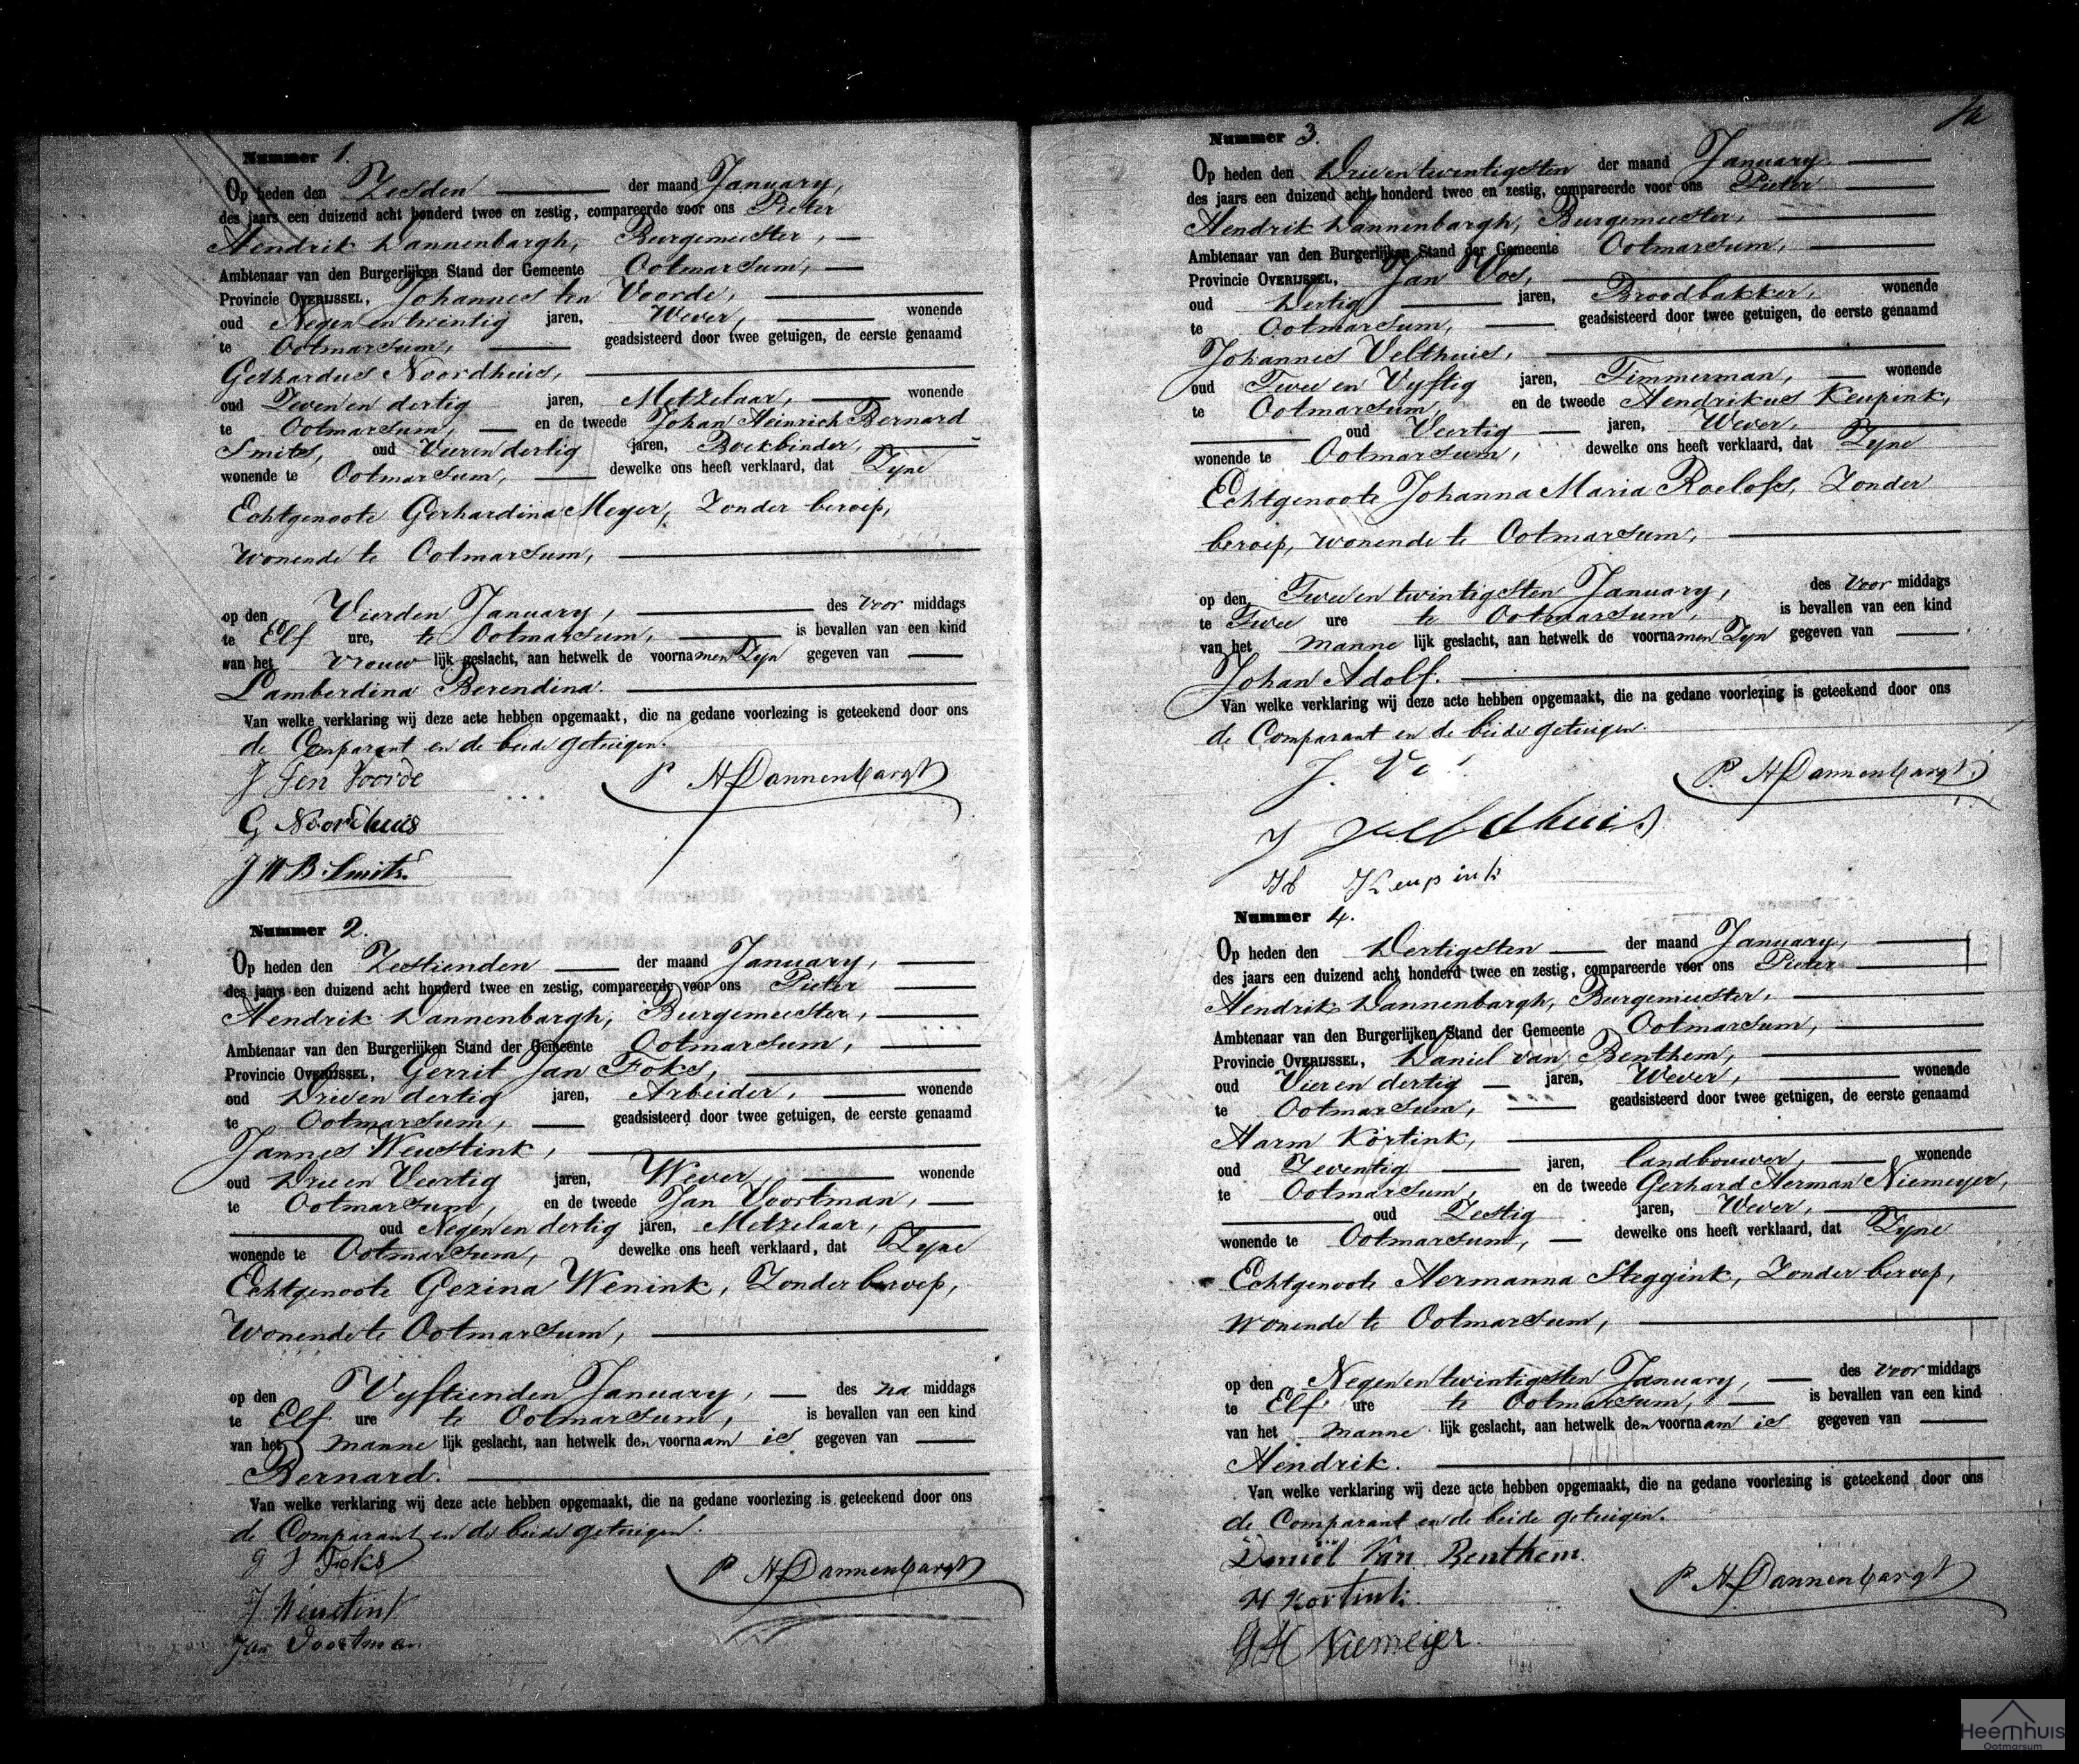 Nummer 1.
Op heden den Zesden der maand January,
des jaars een duizend acht honderd twee en zestig, compareerde voor ons Pieter
Hendrik Dannenbargh, Burgemeester,
Ambtenaar van den Burgerlijken Stand der Gemeente Ootmarsum,
Provincie OVERIJSSEL, Johannes ten Voorde,
oud Negen en twintig jaren, Wever, wonende
te Ootmarsum, geadsisteerd door twee getuigen, de eerste genaamd
Gerhardus Noordhuis,
oud Zeven en dertig jaren, Metzelaar, wonende
te Ootmarsum, en de tweede Johan Heinrich Bernard
Smits, oud Vier en dertig jaren, Boekbinder,
wonende te Ootmarsum, dewelke ons heeft verklaard, dat Zyne
Echtgenoote Gerhardina Meyer, Zonder beroep,
wonende te Ootmarsum,
op den Vierden January, des Voor middags
te Elf ure, te Ootmarsum, is bevallen van een kind
van het vrouw lijk geslacht, aan hetwelk de voornamen Zyn gegeven van
Lamberdina Berendina.
Van welke verklaring wij deze acte hebben opgemaakt, die na gedane voorlezing is geteekend door ons
de Comparant en de beide getuigen.
J ten Voorde
P H Dannenbargh
G Noordhuis
J H B Smits
Nummer 2.
Op heden den Zestienden der maand January,
des jaars een duizend acht honderd twee en zestig, compareerde voor ons Pieter
Hendrik Dannenbargh, Burgemeester,
Ambtenaar van den Burgerlijken Stand der Gemeente Ootmarsum,
Provincie OVERIJSSEL, Gerrit Jan Foks,
oud Drie en dertig jaren, Arbeider, wonende
te Ootmarsum, geadsisteerd door twee getuigen, de eerste genaamd
Jannes Weustink,
oud Drie en Veertig jaren, Wever, wonende
te Ootmarsum, en de tweede Jan Voortman,
oud Negen en dertig jaren, Metzelaar,
wonende te Ootmarsum, dewelke ons heeft verklaard, dat Zyne
Echtgenoote Gezina Wenink, Zonder beroep,
Wonende te Ootmarsum,
op den Vyftienden January, des na middags
te Elf ure te Ootmarsum, is bevallen van een kind
van het manne lijk geslacht, aan hetwelk den voornaam is gegeven van
Bernard.
Van welke verklaring wij deze acte hebben opgemaakt, die na gedane voorlezing is geteekend door ons
de Comparant en de beide getuigen.
G J Foks
P H Dannenbargh
J Weustink
Jan Voortman
Nummer 3.
Op heden den Drie en twintigsten der maand January
des jaars een duizend acht honderd twee en zestig, compareerde voor ons Pieter
Hendrik Dannenbargh, Burgemeester,
Ambtenaar van den Burgerlijken Stand der Gemeente Ootmarsum,
Provincie OVERIJSSEL, Jan Vos,
oud Dertig jaren, Broodbakker, wonende
te Ootmarsum, geadsisteerd door twee getuigen, de eerste genaamd
Johannes Velthuis,
oud Twee en Vyftig jaren, Timmerman, wonende
te Ootmarsum, en de tweede Hendrikus Keupink,
oud Veertig jaren, Wever,
wonende te Ootmarsum, dewelke ons heeft verklaard, dat Zyne
Echtgenoote Johanna Maria Roelofs, Zonder
beroep, wonende te Ootmarsum,
op den Twee en twintigsten January, des Voor middags
te Twee ure te Ootmarsum, is bevallen van een kind
van het manne lijk geslacht, aan hetwelk de voornamen Zyn gegeven van
Johan Adolf.
Van welke verklaring wij deze acte hebben opgemaakt, die na gedane voorlezing is geteekend door ons
de Comparant en de beide getuigen.
P. H Dannenbargh
H Keupink
Nummer 4.
Op heden den Dertigsten der maand January,
des jaars een duizend acht honderd twee en zestig, compareerde voor ons Pieter
Hendrik Dannenbargh, Burgemeester,
Ambtenaar van den Burgerlijken Stand der Gemeente Ootmarsum,
Provincie OVERIJSSEL, Daniel van Benthem,
oud Vier en dertig jaren, Wever, wonende
te Ootmarsum, geadsisteerd door twee getuigen, de eerste genaamd
Harm Körtink,
oud Zeventig jaren, landbouwer, wonende
te Ootmarsum, en de tweede Gerhard Herman Niemeyer,
oud Zestig jaren, Wever,
wonende te Ootmarsum, dewelke ons heeft verklaard, dat Zyne
Echtgenoote Hermanna Steggink, Zonder beroep,
wonende te Ootmarsum,
op den Negen en twintigsten January, des voor middags
te Elf ure te Ootmarsum, is bevallen van een kind
van het manne lijk geslacht, aan hetwelk den voornaam is gegeven van
Hendrik.
Van welke verklaring wij deze acte hebben opgemaakt, die na gedane voorlezing is geteekend door ons
de Comparant en de beide getuigen.
Daniël Van Benthem
P H Dannenbargh
H Kortink
G H Niemeijer
Heemhuis
Ootmarsum